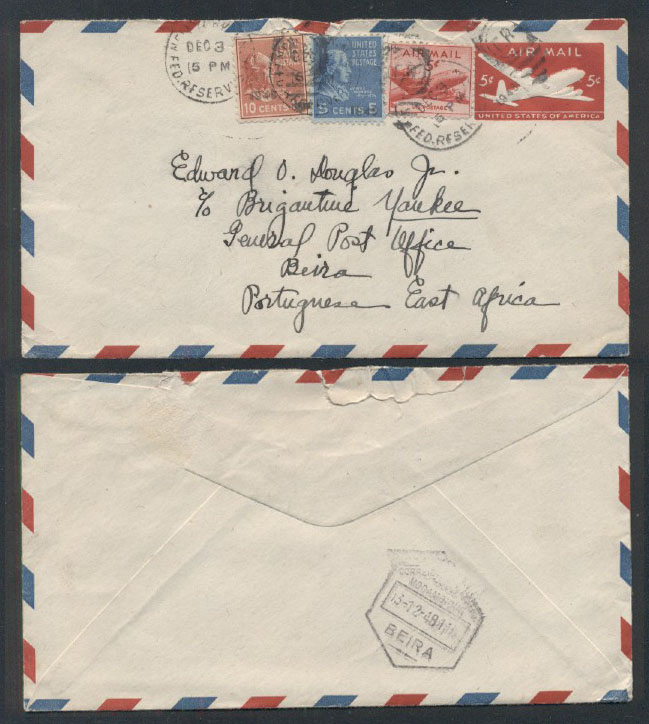 DEC 3
5 PM
FED. RESERV
10 CENTS
UNITED
STATES
POSTAGE
5 CENTS 5
AIR MAIL
5¢
POSTAGE
FED. RESER
AIR MAIL
5¢ 5¢
UNITED STATES OF AMERICA
Edward O. Douglas Jr.
c/o Brigantine Yankee
General Post Office
Beira
Portuguese East Africa
MOÇAMBIQUE
13-12-48
BEIRA